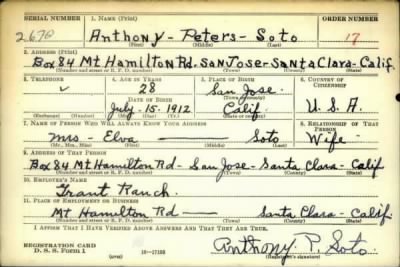 SERIAL NUMBER 1. NAME (Print) ORDER NUMBER
2670 Anthony - Peters - Soto 17
(First) (Middle) (Last)
2. ADDRESS (Print)
Box 84 Mt Hamilton Rd. San Jose - Santa Clara - Calif.
(Number and street or R. F. D. number) (Town) (County) (State)
3. TELEPHONE 4. AGE IN YEARS 5. PLACE OF BIRTH 6. COUNTRY OF CITIZENSHIP
28 San Jose
DATE OF BIRTH (Town or county)
July - 15 - 1912 Calif. U.S.A.
(Exchange) (Number) (Mo.) (Day) (Yr.) (State or country)
7. NAME OF PERSON WHO WILL ALWAYS KNOW YOUR ADDRESS 8. RELATIONSHIP OF THAT PERSON
Mrs - Elva Soto Wife
(Mr., Mrs., Miss) (First) (Middle) (Last)
9. ADDRESS OF THAT PERSON
Box 84 Mt Hamilton Rd - San Jose - Santa Clara - Calif
(Number and street or R. F. D. number) (Town) (County) (State)
10. EMPLOYER'S NAME
Grant Ranch.
11. PLACE OF EMPLOYMENT OR BUSINESS
Mt Hamilton Rd — Santa Clara - Calif.
(Number and street or R. F. D. number) (Town) (County) (State)
I AFFIRM THAT I HAVE VERIFIED ABOVE ANSWERS AND THAT THEY ARE TRUE.
REGISTRATION CARD
D. S. S. Form 1 (over) Anthony P. Soto
(Registrant's signature)